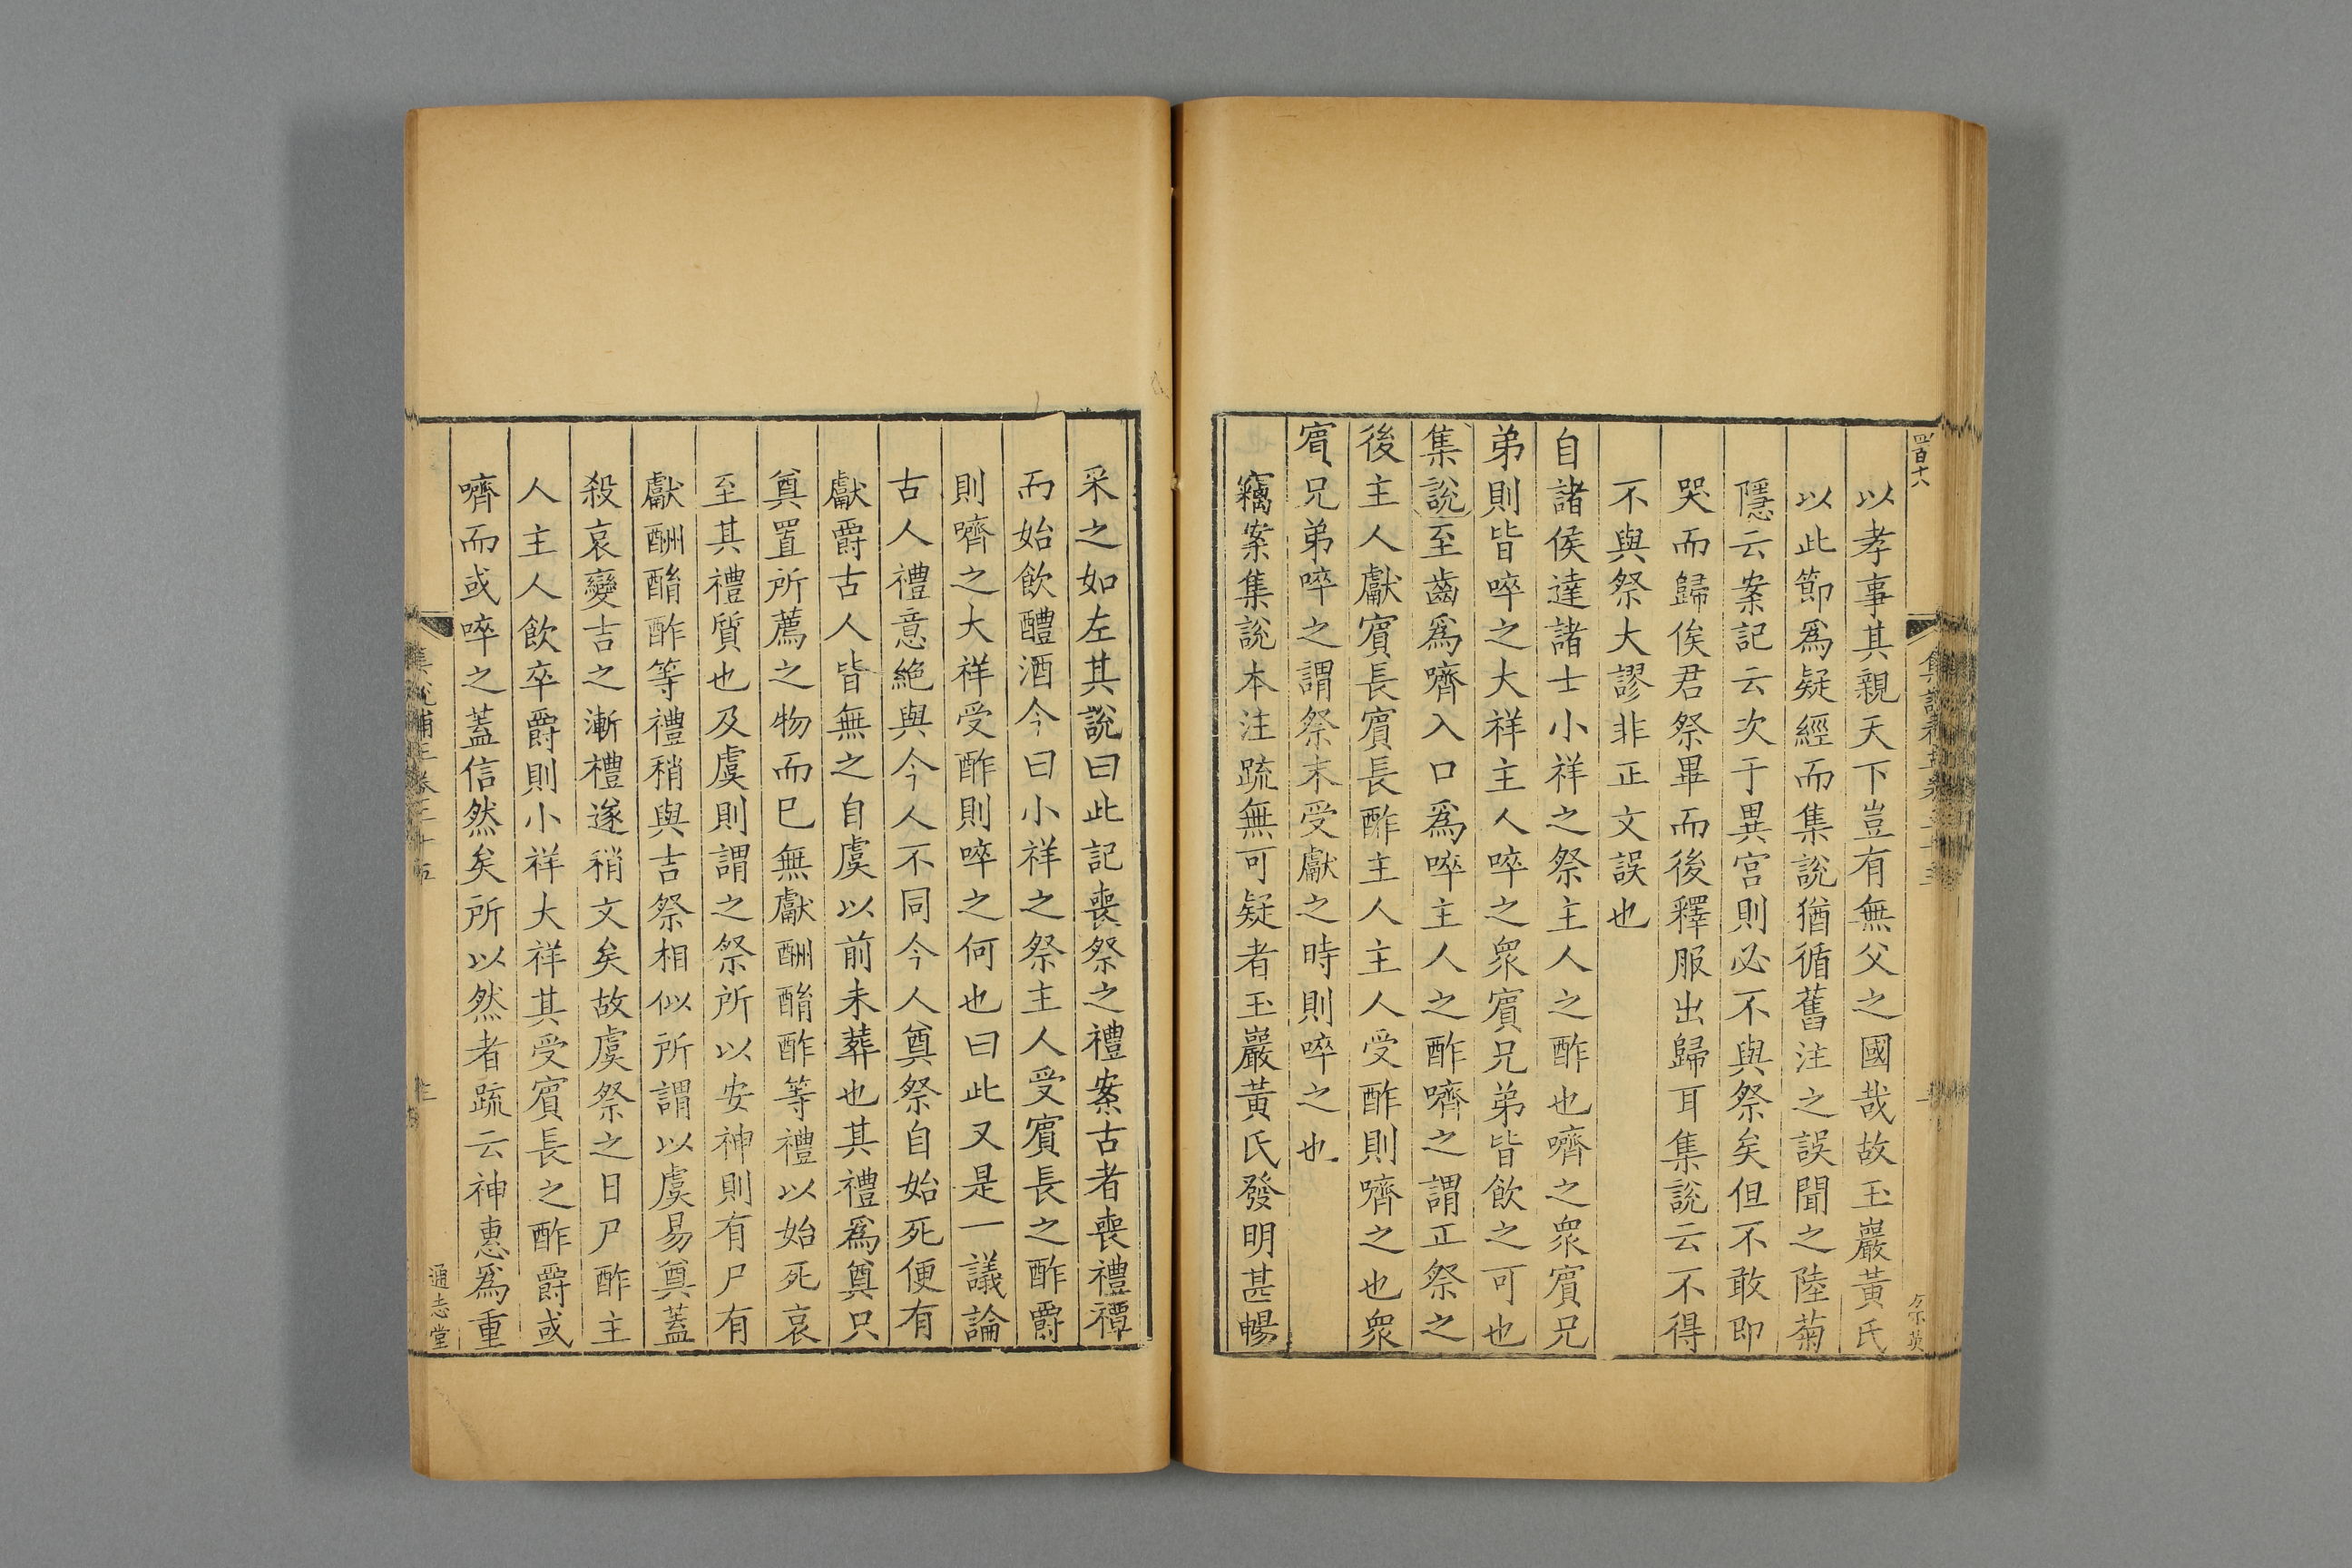 四百十八
以孝事其親天下豈有無父之國哉故玉巖黃氏
以此節爲疑經而集說猶循舊注之誤聞之陸菊
隱云案記云次于異宮則必不與祭矣但不敢即
哭而歸俟君祭畢而後釋服出歸耳集說云不得
不與祭大謬非正文誤也
自諸侯達諸士小祥之祭主人之酢也嚌之眾賓兄
弟則皆啐之大祥主人啐之眾賓兄弟皆飲之可也
集說至齒爲嚌入口爲啐主人之酢嚌之謂正祭之
後主人獻賓長賓長酢主人主人受酢則嚌之也眾
賓兄弟啐之謂祭末受獻之時則啐之也
竊案集說本注疏無可疑者玉巖黃氏發明甚暢
采之如左其說曰此記喪祭之禮案古者喪禮禫
而始飲醴酒今曰小祥之祭主人受賓長之酢爵
則嚌之大祥受酢則啐之何也曰此又是一議論
古人禮意絶與今人不同今人奠祭自始死便有
獻爵古人皆無之自虞以前未葬也其禮爲奠只
奠置所薦之物而已無獻酬酳酢等禮以始死哀
至其禮質也及虞則謂之祭所以安神則有尸有
獻酬酳酢等禮稍與吉祭相似所謂以虞易奠蓋
殺哀變吉之漸禮遂稍文矣故虞祭之日尸酢主
人主人飲卒爵則小祥大祥其受賓長之酢爵或
嚌而或啐之蓋信然矣所以然者疏云神惠爲重
集說補正卷三十五
通志堂